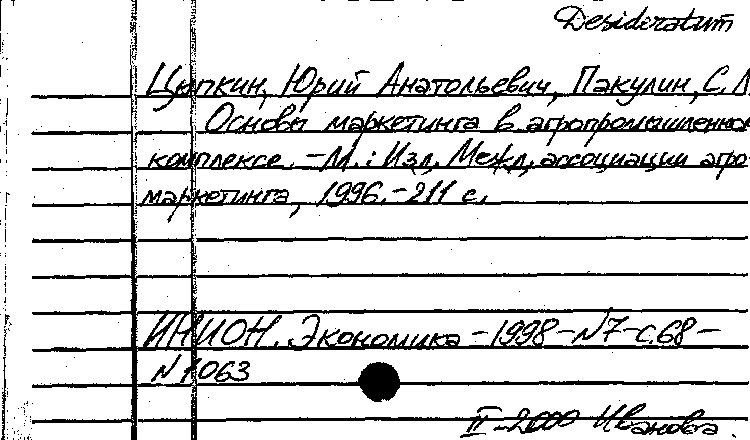 Desideratum
Цыпкин, Юрий Анатольевич, Пакулин, С.Л
Основы маркетинга в агропромышленно
комплексе. -М.: Изд. Межд. ассоциации агро-
маркетинга, 1996. - 211 с.
ИНИОН. Экономика - 1998 - N7 - с.68 -
N 1063
II - 2000 Иванова.